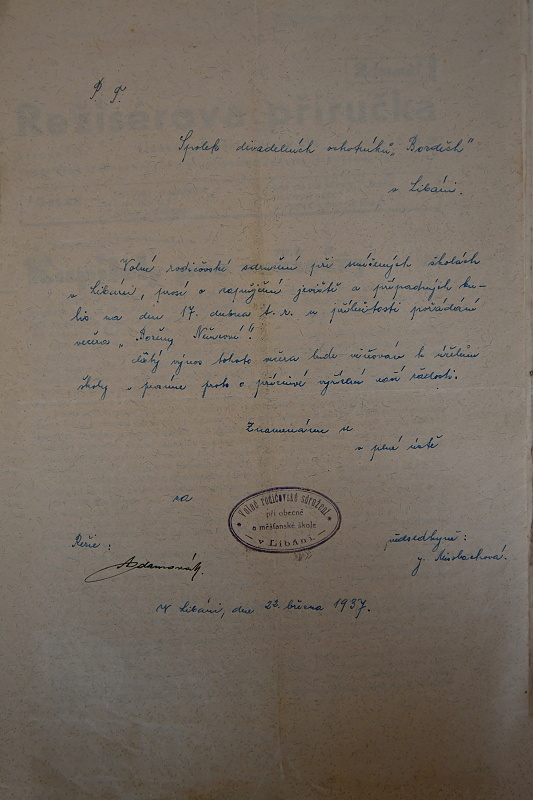 P. T.
Spolek divadelních ochotníků „Bordišk"
v Libáni.
Volné rodičovské sdružení při zdejších školách
v Libáni, prosí o zapůjčení jeviště a případných ku-
lis na den 17. dubna t. r. u příležitosti pořádání
večera „Boženy Němcové".
Čistý výnos tohoto večera bude věnován k účelům
školy a prosíme proto o příznivé vyřízení naší žádosti.
Znamenáme se
v plné úctě
za
Volné rodičovské sdružení
při obecné
a měšťanské škole
v Libáni
Režie:
Adamovák.
předsedkyně:
V Libáni, dne 23. března 1937.